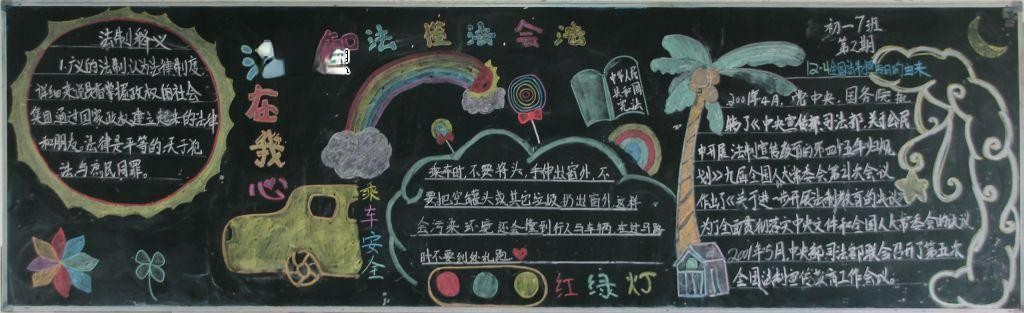 法制释义
1.广义的法制认为法律制度
详细来说指掌握政权的社会
集团通过国家政权建立起来的法律
和朋友,法律是平等的天子犯
法与庶民同罪。
法在我心
知法懂法会法
中华人民
共和国
宪法
乘车安全
乘车时,不要将头、手伸出窗外,不
要把空罐头或其它垃圾扔出窗外,这样
会污染环境,还会撞到行人与车辆,在过马路
时不要到处乱跑
红绿灯
初一7班
第2期
12·4全国法制宣传日的由来
2001年4月,党中央、国务院批
转了《中央宣传部司法部关于公民
中开展法制宣传教育的第四个五年规
划》九届全国人大常委会第21次会议
作出了《关于进一步开展法制教育的决议》
为了全面贯彻落实中央文件和全国人大常委会的决议
2001年5月中央部司法部联合召开了第五次
全国法制宣传教育工作会议。